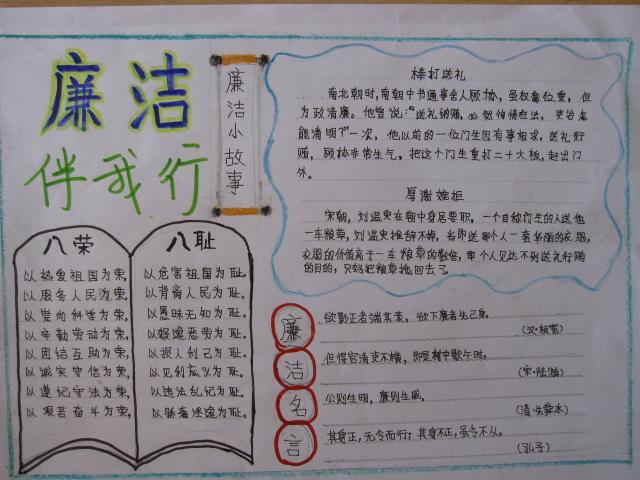 廉洁
伴我行
廉洁小故事
棒打送礼
南北朝时,南朝中书通事舍人顾协,虽权高位重,但
为政清廉。他曾说:“送礼纳贿,必然徇情枉法,吏治怎
能清明?”一次,他以前的一位门生因有事相求,送礼行
贿,顾协非常生气,把这个门生重打二十大板,赶出门
外。
厚谢婉拒
宋朝,刘温叟在朝中身居要职,一个自称门生的人送他
一车粮草,刘温叟推辞不掉,当即送那个人一套华丽的衣服,
衣服的价值高于一车粮草的数倍,那个人见达不到送礼行贿
的目的,只好把粮草拖回去了。
八荣
以热爱祖国为荣,
以服务人民为荣,
以崇尚科学为荣,
以辛勤劳动为荣,
以团结互助为荣,
以诚实守信为荣,
以遵纪守法为荣,
以艰苦奋斗为荣,
八耻
以危害祖国为耻。
以背离人民为耻。
以愚昧无知为耻。
以好逸恶劳为耻。
以损人利己为耻。
以见利忘义为耻。
以违法乱纪为耻。
以骄奢淫逸为耻。
廉洁名言
欲影正者端其表,欲下廉者先己身。
(汉·桓宽)
但得官清吏不横,即是村中歌午时。
(宋·陆游)
公则生明,廉则生威。
(清·朱舜水)
其身正,无令而行;其身不正,虽令不从。
(孔子)